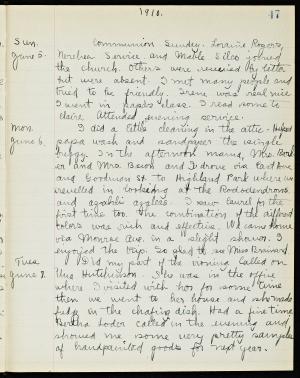 1910.
17
Sun. Communion Sunday. Loraine Rogers,
June 5. Service and Mable Siler joined
the church. Others were received by letter
but were absent. I met many people and
tried to be friendly. Irene was real nice
I went in papa's class. I read some to
Claire. Attended evening service.
Mon. I did a little cleaning in the attic. Helped
June 6. papa wash and sandpaper the single
buggy. In the afternoon mama, Mrs.
and Mrs. and I drove via East Ave
and Goodman St. to Highland Park where we
revelled in looking at the Rododendrons
and azalias. I saw laurel for the
first time too. The combination of the different
colors was rich and effective. We came home
via Monroe Ave. in a slight shower. I
enjoyed the trip. So glad to see Mrs.
Tues. Did my part of the ironing. Called on
June 7. Una Hutchinson. She was in the office
where I visited with her for some time
then we went to her house and she made
fudge in the chafing dish. Had a fine time
Bertha Loder called in the evening and
showed me some very pretty samples
of handpainted goods for next year.